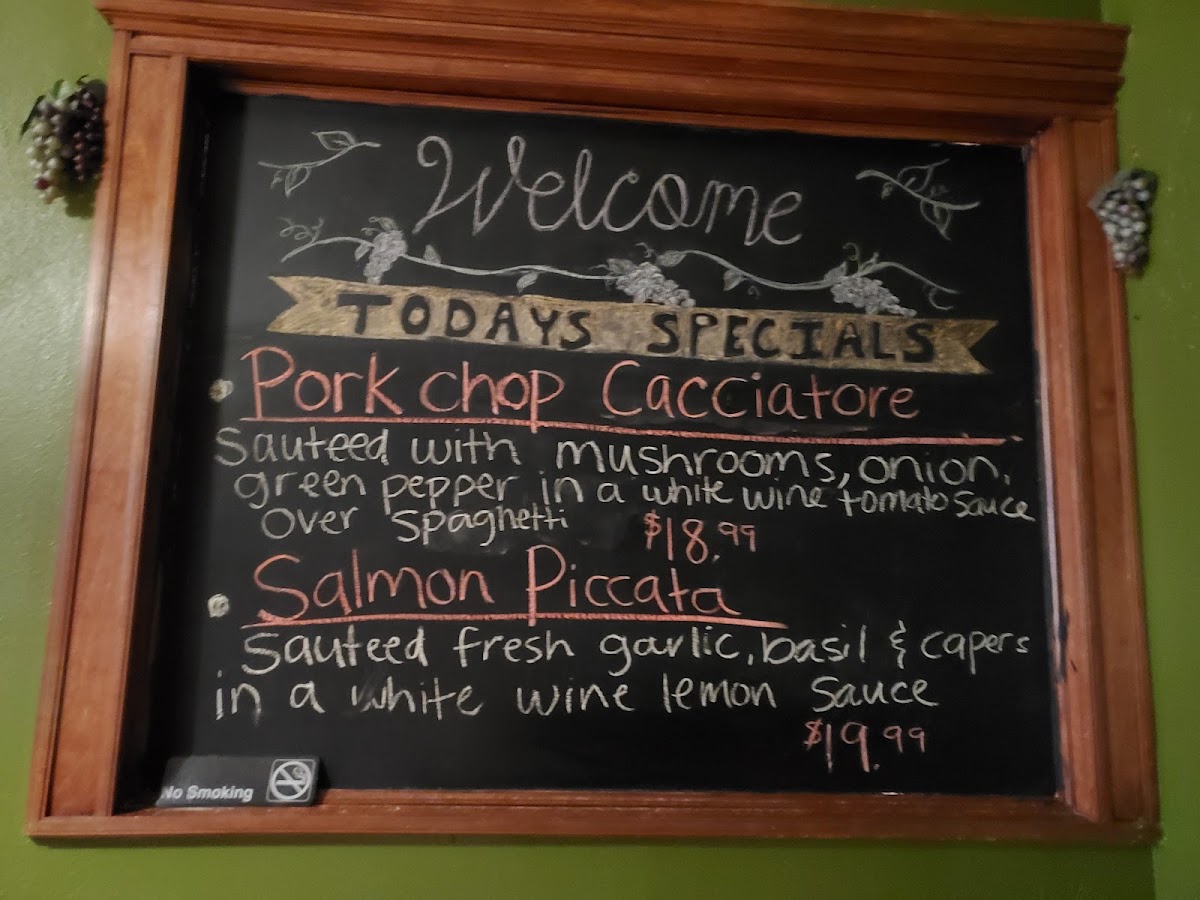 Welcome
TODAYS SPECIALS
Pork chop Cacciatore
Sauteed with mushrooms, onion,
green pepper in a white wine tomato sauce
over spaghetti $18.99
Salmon Piccata
Sauteed fresh garlic, basil & capers
in a white wine lemon sauce
$19.99
No Smoking